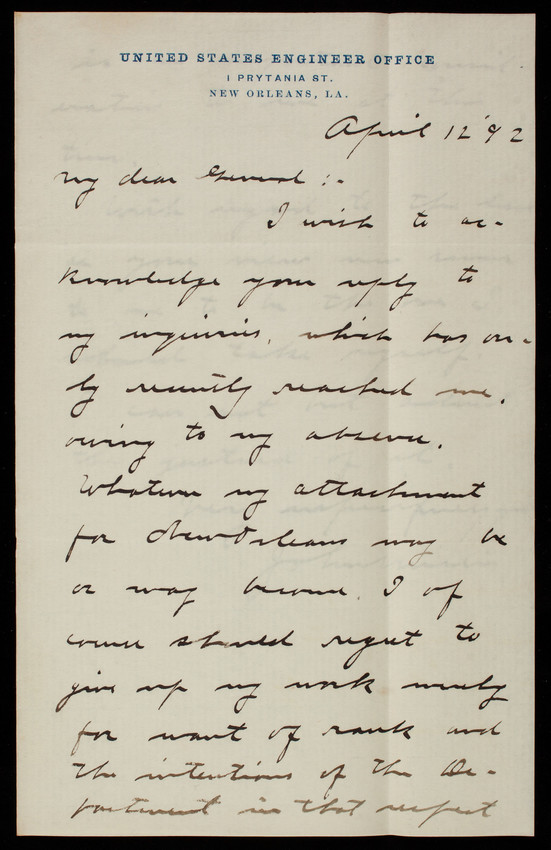 UNITED STATES ENGINEER OFFICE
1 PRYTANIA ST.
NEW ORLEANS, LA.
April 12 '92
My dear General :-
I wish to ac-
knowledge your reply to
my inquiries, which has on-
ly recently reached me,
owing to my absence.
Whatever my attachment
for New Orleans may be
or may become, I of
course should regret to
give up my work merely
for want of rank and
the intentions of the De-
partment in that respect